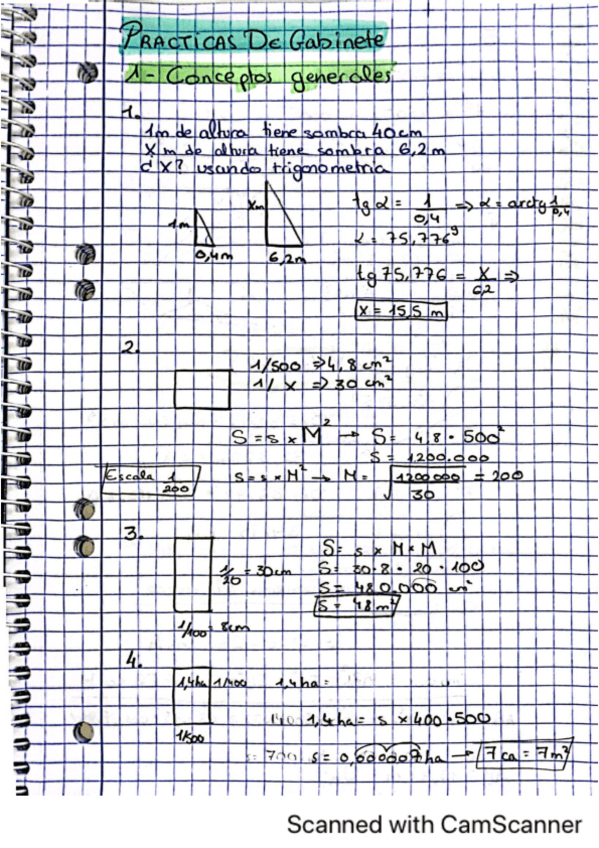 PRACTICAS De Gabinete
1- Conceptos generales
1.
1m de altura tiene sombra 40cm
X m de altura tiene sombra 6,2m
¿X? usando trigonometria
1m
0,4m
Xm
6,2m
tg α = 1/0,4 => α = arctg 1/0,4
α = 75,776^g
tg 75,776 = X/6,2 =>
X = 15,5 m
2.
1/500 => 4,8 cm²
1/ x => 30 cm²
S = s x M² → S = 4,8 · 500²
S = 1200.000
Escala 1/200
S = s x M² → M = √1200000/30 = 200
3.
1/20 = 30cm
1/100 = 8cm
S = s x M x M
S = 30·8 · 20 · 100
S = 480.000 cm²
S = 48 m²
4.
1,4ha 1/400
1/500
1,4 ha =
1,4 ha = s x 400 · 500
s = 0,000007 ha → 7 ca = 7m²
Scanned with CamScanner